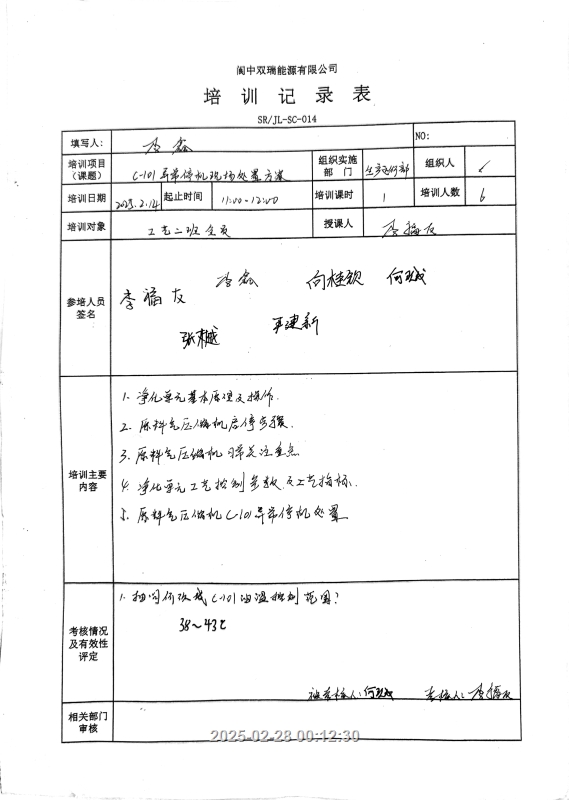 阆中双瑞能源有限公司
培训记录表
SR/JL-SC-014
填写人： 李鑫 NO:
培训项目（课题） C-101异常停机现场处置方案 组织实施部门 生产运行部 组织人
培训日期 2025.2.14 起止时间 11:00-12:00 培训课时 1 培训人数 6
培训对象 工艺二班全员 授课人 李福友
参培人员签名 李福友 李鑫 向桂锬 何政城
张越 平建新
培训主要内容
1. 净化单元基本原理及操作.
2. 原料气压缩机启停步骤.
3. 原料气压缩机日常关注重点
4. 净化单元工艺控制参数及工艺指标.
5. 原料气压缩机C-101异常停机处置
考核情况及有效性评定
1. 抽问何政城C-101油温控制范围？
38~43℃
被考核人：何政城 考核人：李福友
相关部门审核
2025-02-28 00:12:30